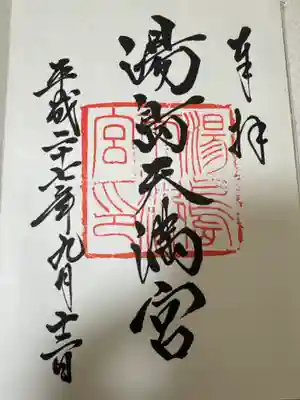 奉拝
湯島天満宮
平成二十七年九月十二日